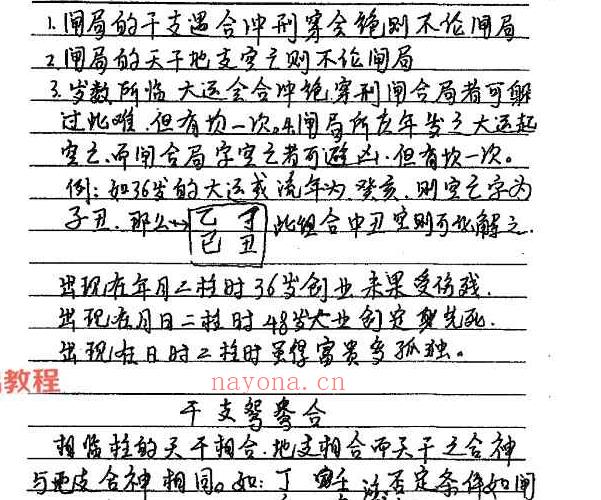 1.闸局的干支遇合冲刑穿会绝则不论闸局
2.闸局的天干地支空亡则不论闸局
3.岁数所临大运会合冲绝穿刑闸合局者可解
过此难,但有坎一次。4.闸局所在年岁之大运起
空亡,而闸合局字空亡者可避凶,但有坎一次。
例:如36岁的大运或流年为癸亥,则空亡字为
子丑,那么 乙丁 此组合中丑空则可以解之.
巳丑
出现在年月二柱时36岁创业未果受伤残.
出现在月日二柱时48岁大业创定身先死.
出现在日时二柱时虽得富贵多孤独。
教程
nayona.cn
干支鸳鸯合
相临柱的天干相合,地支相合而天干之合神
与地支合神相同。如:丁 壬 该否定条件如闸